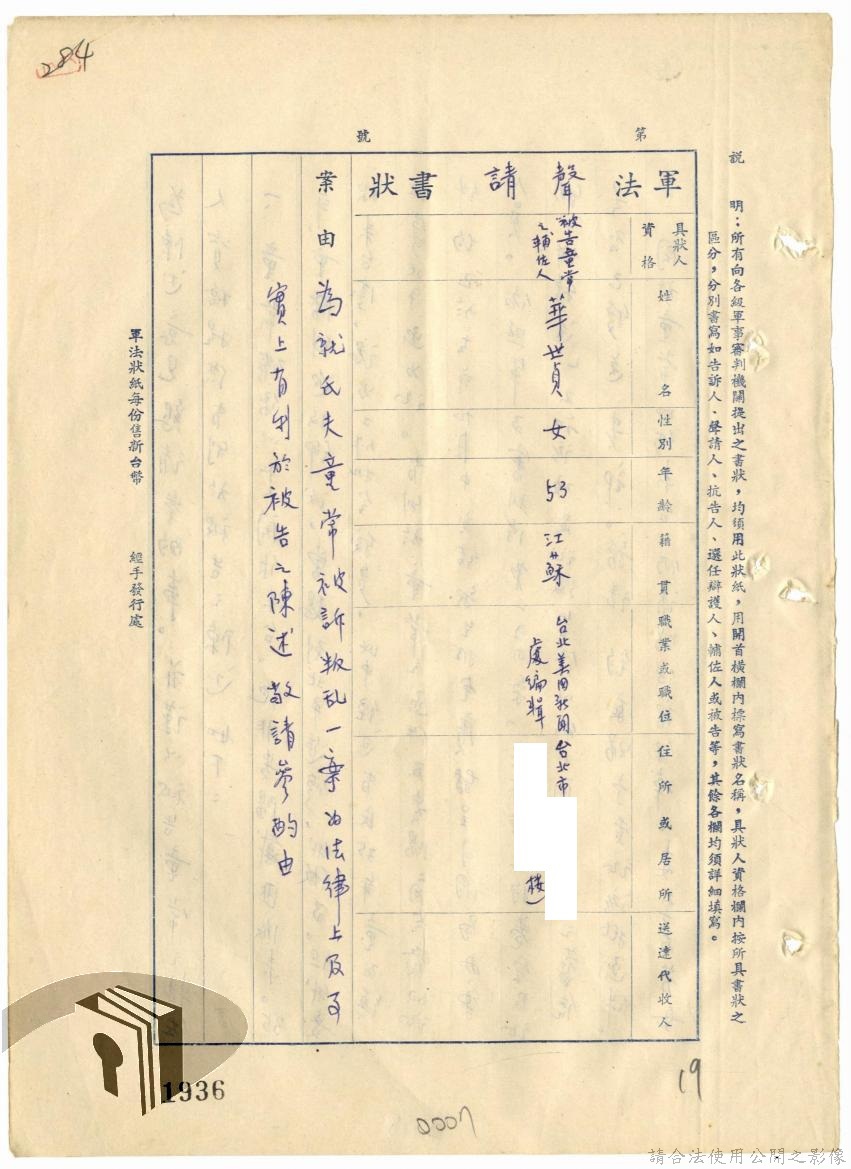 284
第 號
說明：所有向各級軍事審判機關提出之書狀，均須用此狀紙，用開首橫欄內標寫書狀名稱，具狀人資格欄內按所具書狀之
區分，分別書寫如告訴人、聲請人、抗告人、選任辯護人、輔佐人或被告等，其餘各欄均須詳細填寫。
軍法聲請書狀
具狀人資格
姓名
性別
年齡
籍貫
職業或職位
住所或居所
送達代收人
被告童常
之輔佐人
華世貞
女
53
江蘇
台北美国新聞
處編輯
台北市
樓
案由
為就氏夫童常被訴叛乱一案内法律上及事
實上有利於被告之陳述敬請參酌由
軍法狀紙每份售新台幣
經手發行處
19
1936
0007
請合法使用公開之影像